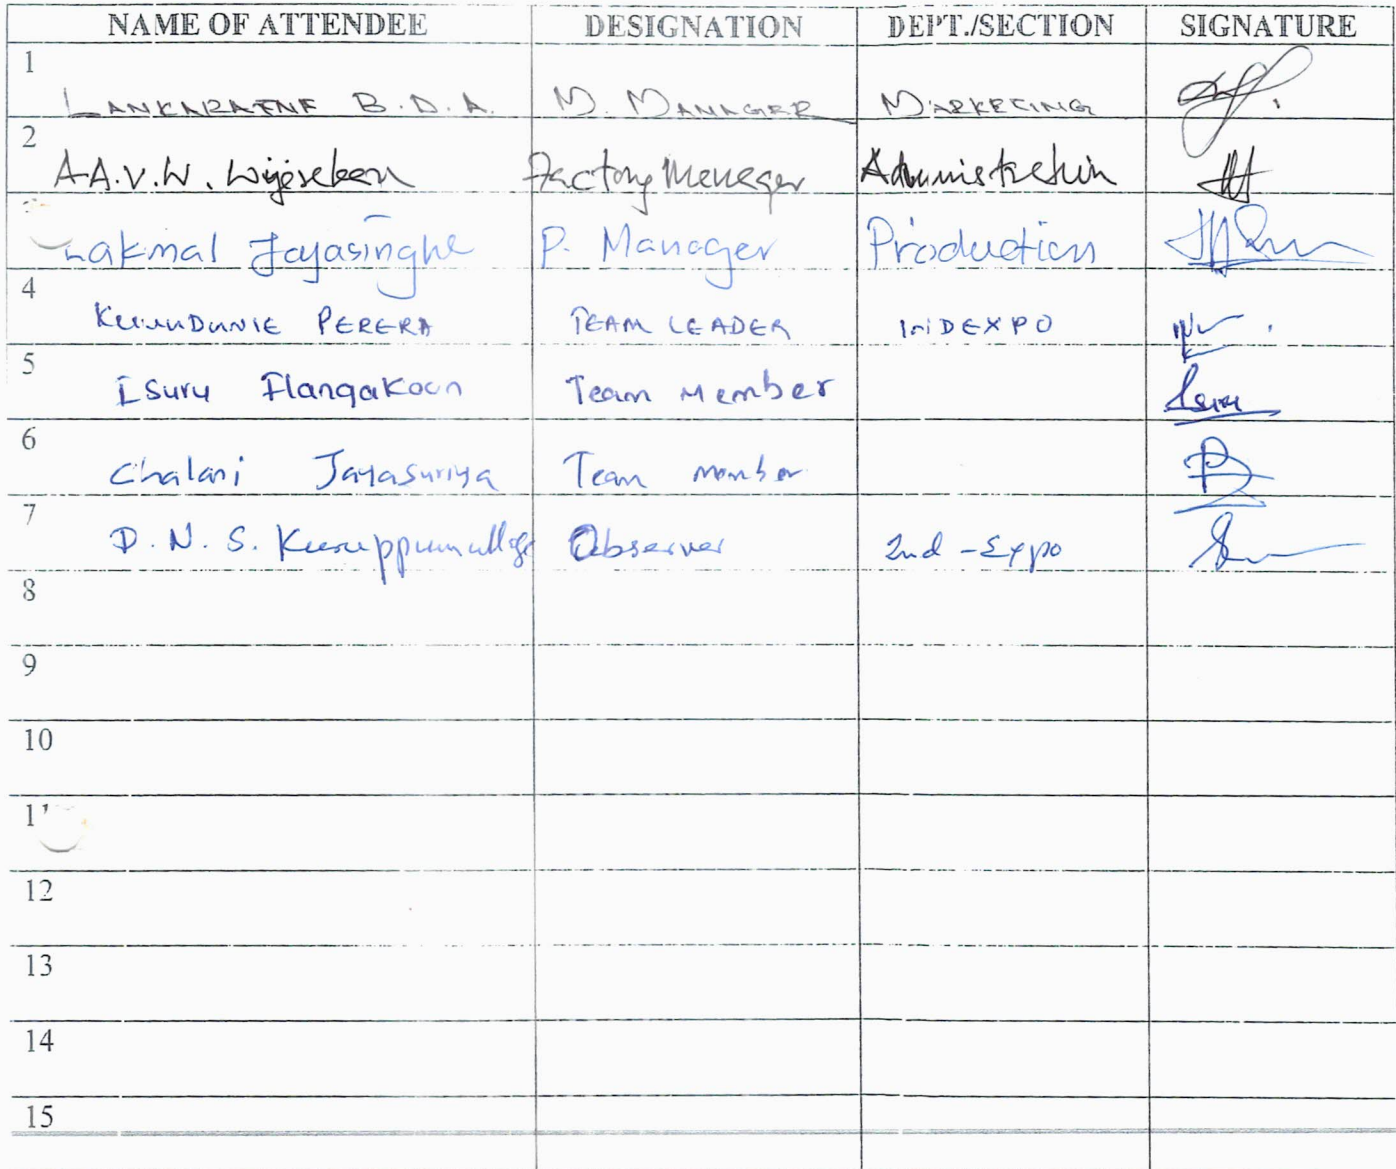 NAME OF ATTENDEE DESIGNATION DEPT./SECTION SIGNATURE
1
LANKARATNE B.D.A. M. MANAGER MARKETING
2
A.A.V.W. Wijesekera Factory Manager Administration
Lakmal Jayasinghe P. Manager Production
4
PERERA TEAM LEADER INDEXPO
5
Isuru Ilangakoon Team Member
6
Chalani Jayasuriya Team member
7
D. N. S. Observer Ind-Expo
8
9
10
11
12
13
14
15